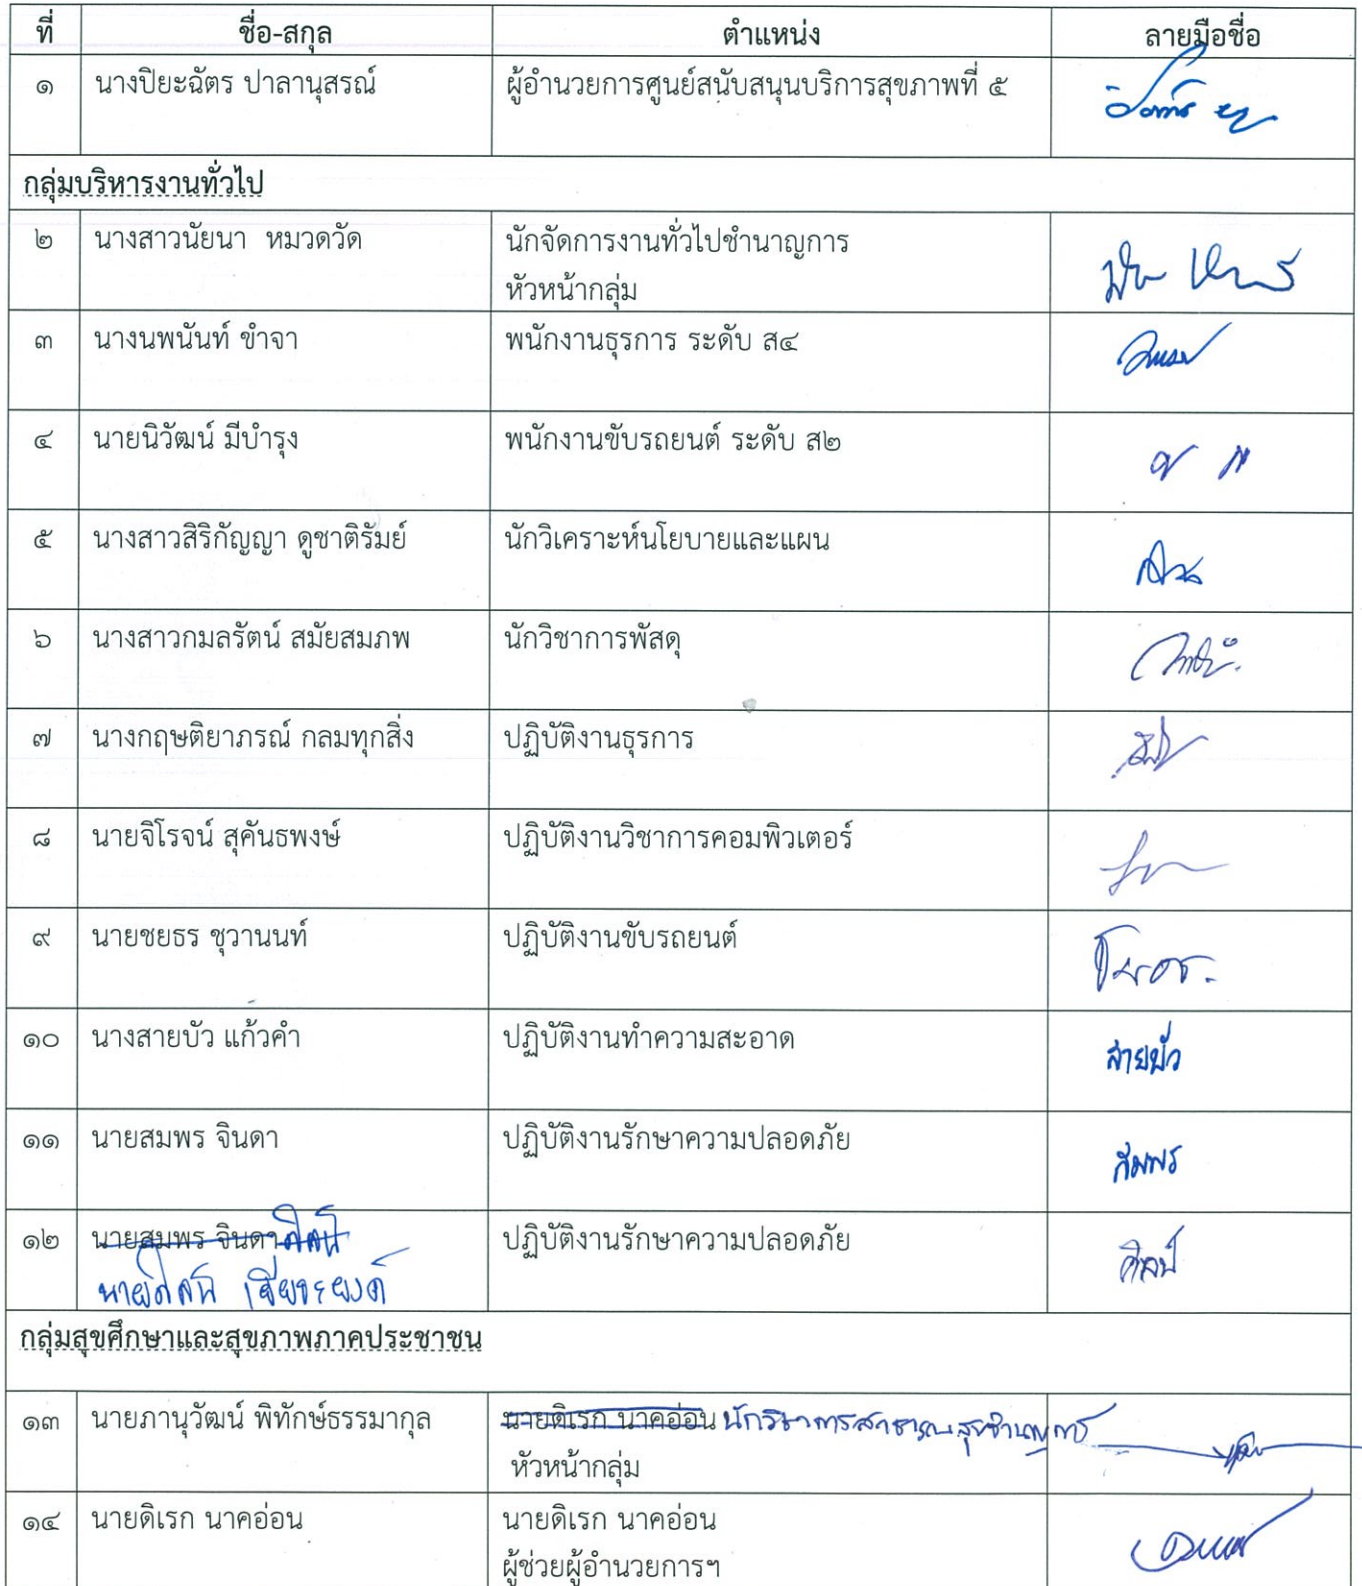 ที่ ชื่อ-สกุล ตำแหน่ง ลายมือชื่อ
๑ นางปิยะฉัตร ปาลานุสรณ์ ผู้อำนวยการศูนย์สนับสนุนบริการสุขภาพที่ ๕
กลุ่มบริหารงานทั่วไป
๒ นางสาวนัยนา หมวดวัด นักจัดการงานทั่วไปชำนาญการ
หัวหน้ากลุ่ม
๓ นางนพนันท์ ขำจา พนักงานธุรการ ระดับ ส๔
๔ นายนิวัฒน์ มีบำรุง พนักงานขับรถยนต์ ระดับ ส๒
๕ นางสาวสิริกัญญา ดูชาติรัมย์ นักวิเคราะห์นโยบายและแผน
๖ นางสาวกมลรัตน์ สมัยสมภพ นักวิชาการพัสดุ
๗ นางกฤษติยาภรณ์ กลมทุกสิ่ง ปฏิบัติงานธุรการ
๘ นายจิโรจน์ สุคันธพงษ์ ปฏิบัติงานวิชาการคอมพิวเตอร์
๙ นายชยธร ชุวานนท์ ปฏิบัติงานขับรถยนต์
๑๐ นางสายบัว แก้วคำ ปฏิบัติงานทำความสะอาด สายบัว
๑๑ นายสมพร จินดา ปฏิบัติงานรักษาความปลอดภัย สมพร
๑๒ นายสมพร จินดา ปฏิบัติงานรักษาความปลอดภัย ศิลป์
นายศิลป์
กลุ่มสุขศึกษาและสุขภาพภาคประชาชน
๑๓ นายภานุวัฒน์ พิทักษ์ธรรมากุล นายดิเรก นาคอ่อน นักวิชาการสาธารณสุขชำนาญการ
หัวหน้ากลุ่ม
๑๔ นายดิเรก นาคอ่อน นายดิเรก นาคอ่อน
ผู้ช่วยผู้อำนวยการฯ